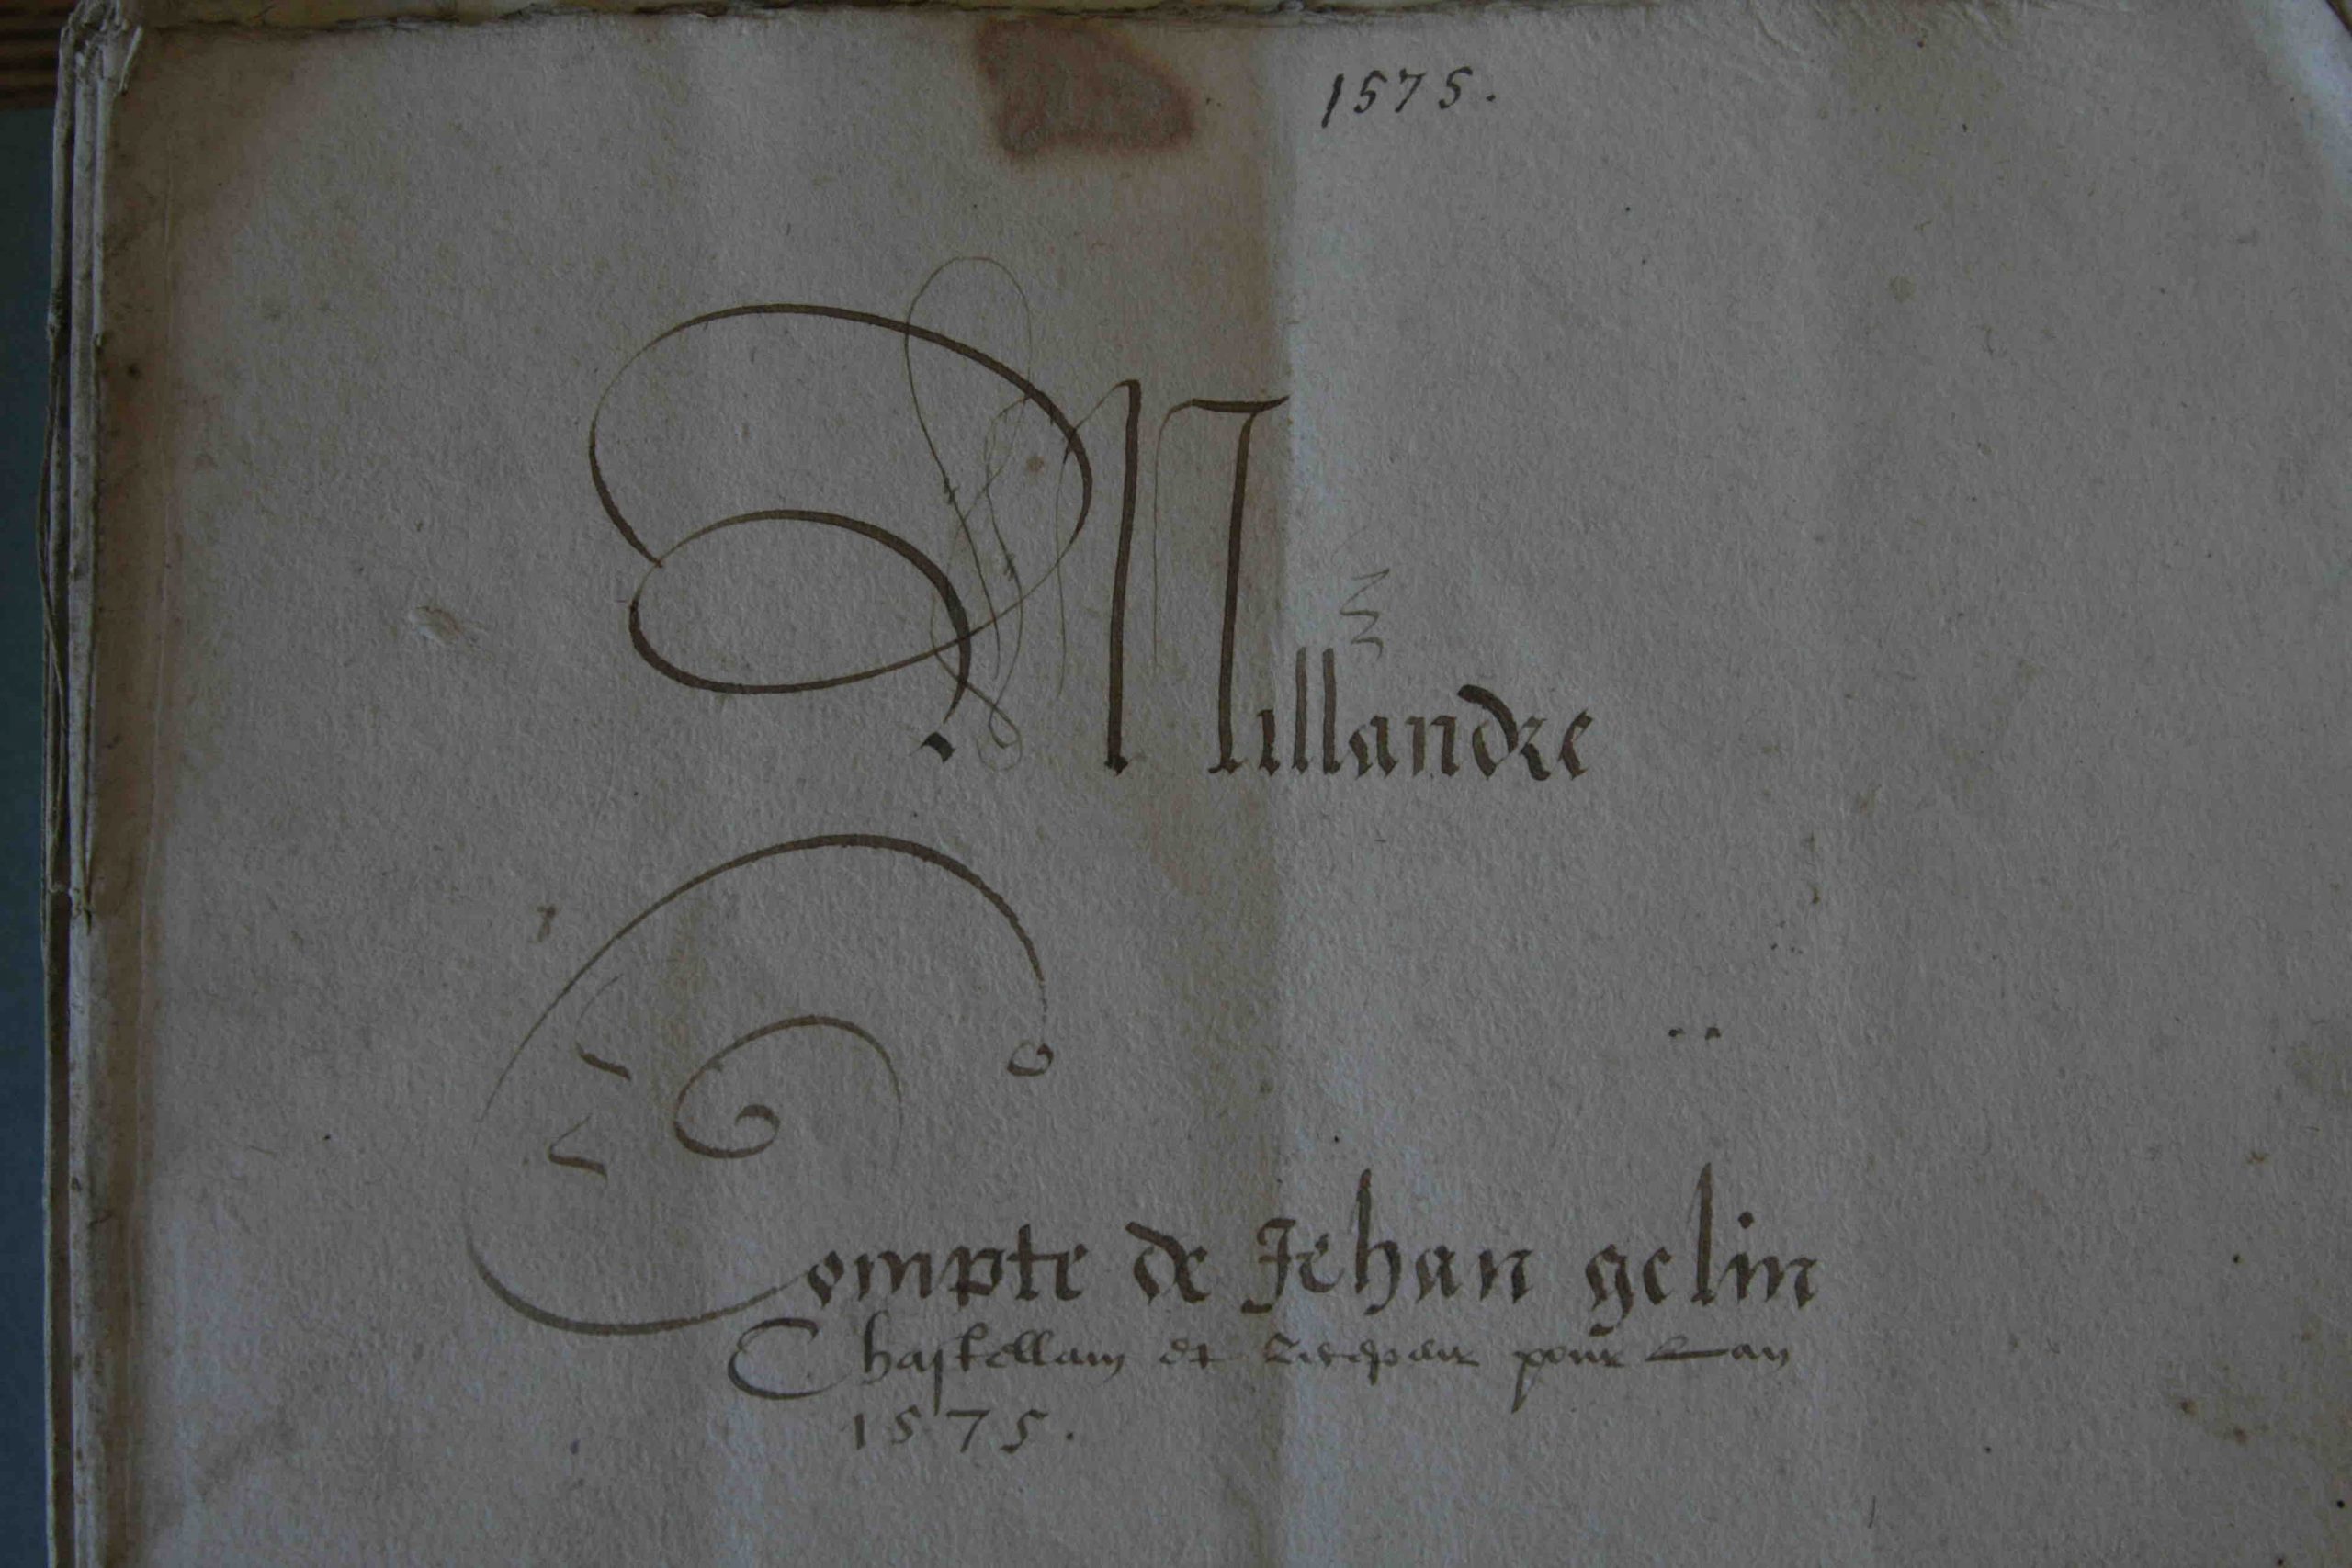 1575.
Millandre
Compte de Jehan gelin
Chastellain et Recepveur pour Lan
1575.